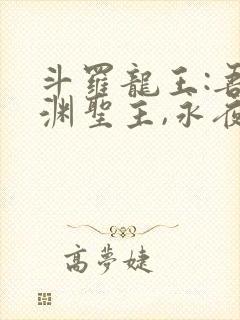 斗羅龍王:吾
渊聖王,永夜
高夢婕